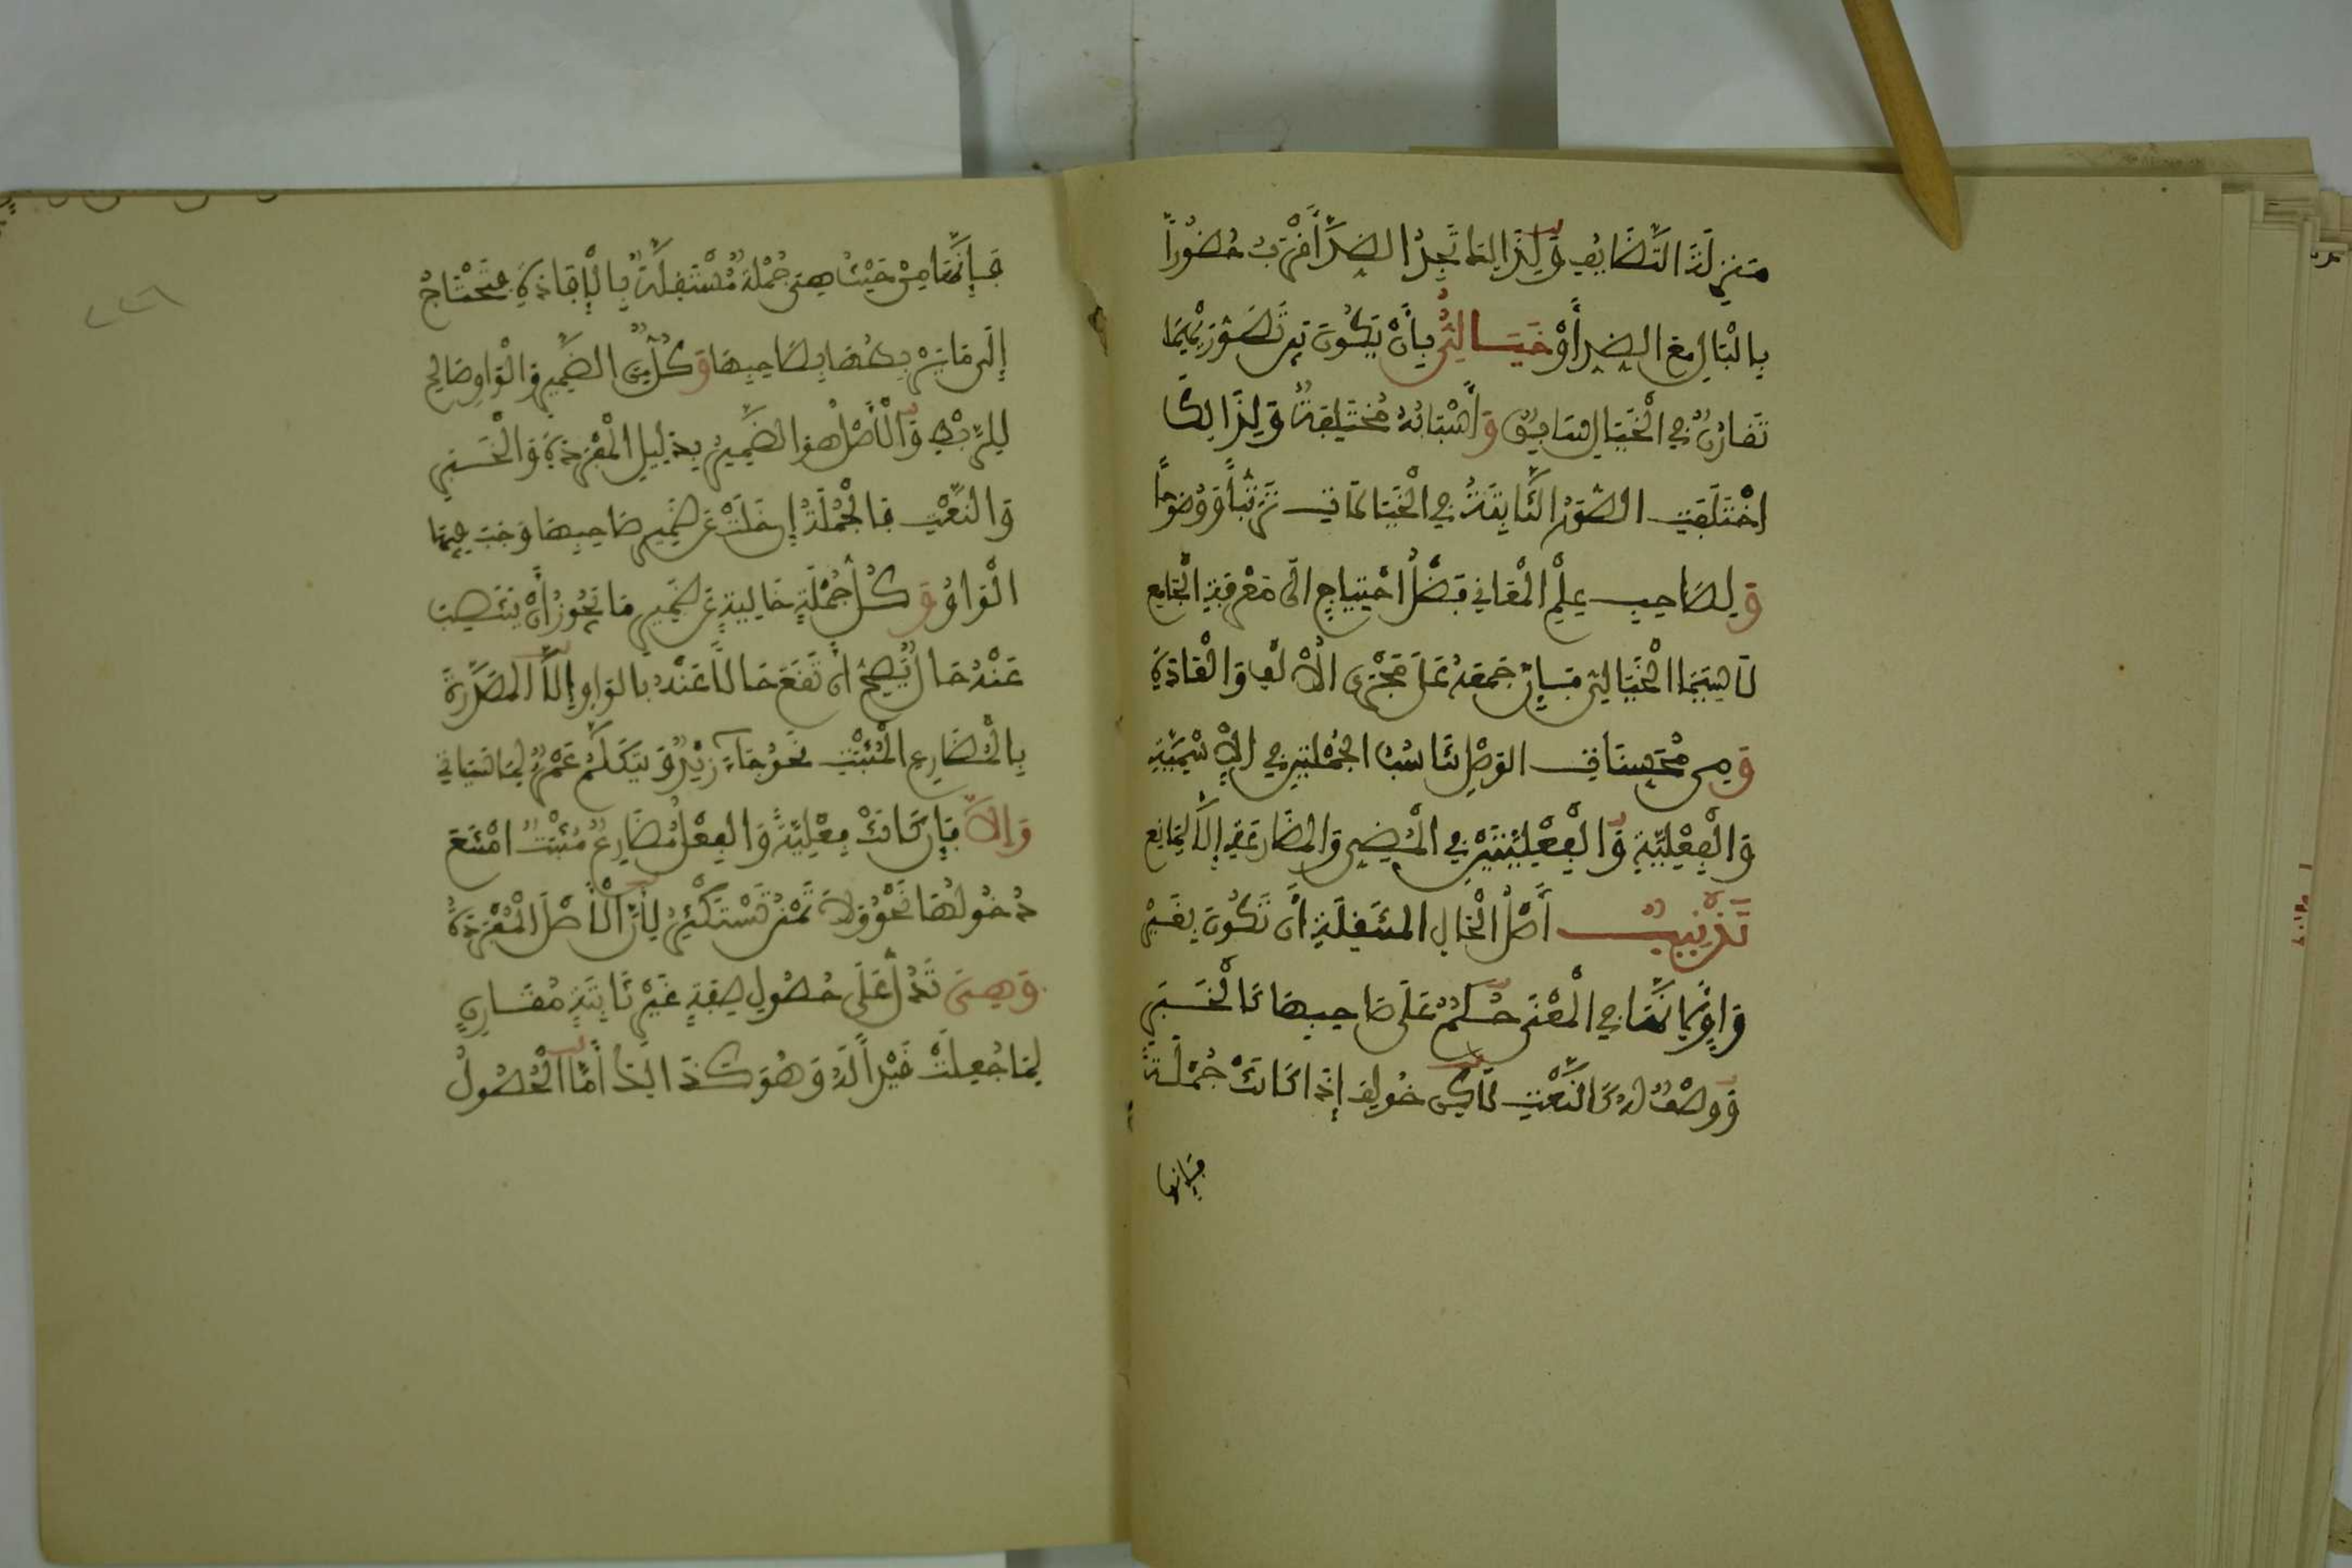 مَنزِلَةَ التَّضَايُفِ وَلِذَا إِنَّمَا تَجِدُ الضِّدَّ أَقْرَبَ حُضُوراً
بِالْبَالِ مَعَ الضِّدِّ أَوْ خَيَالِيٌّ بِأَنْ يَكُونَ بَيْنَ تَصَوُّرَيْهِمَا
تَقَارُنٌ فِي الْخَيَالِ سَابِقٌ وَأَسْبَابُهُ مُخْتَلِفَةٌ وَلِذَالِكَ
اخْتَلَفَتِ الصُّوَرُ الثَّابِتَةُ فِي الْخَيَالَاتِ تَرَتُّباً وَوُضُوحاً
وَلِصَاحِبِ عِلْمِ الْمَعَانِي فَضْلُ احْتِيَاجٍ الَى مَعْرِفَةِ الْجَامِعِ
لَا سِيَمَا الْخَيَالِيّ فَإِنَّ جَمْعَهُ عَلَى مَجْرَى الْإِلْفِ وَالْعَادَةِ
وَمِن مُحَسِّنَاتِ الْوَصْلِ تَنَاسُبُ الْجُمْلَتَيْنِ فِي الْإِسْمِيَّةِ
وَالْفِعْلِيَّةِ وَالْفِعْلِيَّتَيْنِ فِي الْمُضِيِّ وَالْمُضَارَعَةِ إِلَّا لِمَانِعٍ
تَذْنِيبٌ أَصْلُ الْحَالِ الْمُنْتَقِلَةِ أَن تَكُونَ بِغَيْرِ
وَاوٍ لِأَنَّهَا فِي الْمَعْنَى حُكْمٌ عَلَى صَاحِبِهَا كَالْخَبَرِ
وَوَصْفٌ لَهُ كَالنَّعْتِ لَكِن خُولِفَ إِذَا كَانَتْ جُمْلَةً
فَإِنَّهَا
فَإِنَّهَا مِنْ حَيْثُ هِيَ جُمْلَةٌ مُسْتَقِلَّةٌ بِالْإِفَادَةِ فَتَحْتَاجُ
إِلَى مَا يَرْبِطُهَا بِصَاحِبِهَا وَكُلٌّ مِنَ الضَّمِيرِ وَالْوَاوِ صَالِحٌ
لِلرَّبْطِ وَالْأَصْلُ هُوَ الضَّمِيرُ بِدَلِيلِ الْمُفْرَدَةِ وَالْخَبَرِ
وَالنَّعْتِ فَالْجُمْلَةُ إِن خَلَتْ عَن ضَمِيرِ صَاحِبِهَا وَجَبَ فِيهَا
الْوَاوُ وَكُلُّ جُمْلَةٍ خَالِيَةٍ عَن ضَمِيرِ مَا يَجُوزُ أَنْ يَنْتَصِبَ
عَنْهُ حَالٌ يَصِحُّ أَن تَقَعَ حَالًا عَنْهُ بِالْوَاوِ إِلَّا الْمُصَدَّرَةَ
بِالْمُضَارِعِ الْمُثْبَتِ نَحْوُ جَاءَ زَيْدٌ وَيَتَكَلَّمُ عَمْرٌو لِمَا سَيَاتِي
وَإِلَّا فَإِن كَانَتْ فِعْلِيَّةً وَالْفِعْلُ مُضَارِعٌ مُثْبَتٌ امْتَنَعَ
دُخُولُهَا نَحْوُ وَلَا تَمْنُن تَسْتَكْثِرُ لِأَنَّ الْأَصْلَ الْمُفْرَدَةُ
وَهِيَ تَدُلُّ عَلَى حُصُولِ صِفَةٍ غَيْرِ ثَابِتَةٍ مُقَارِنٍ
لِمَا جُعِلَتْ قَيْداً لَهُ وَهُوَ كَذَالِكَ أَمَّا الْحُصُولُ